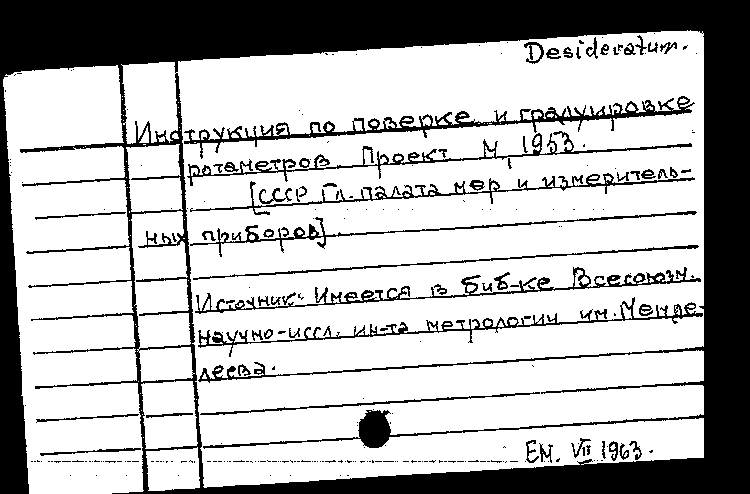 Desideratum.
Инструкция по поверке и градуировке
ротаметров. Проект М, 1953.
[СССР Гл. палата мер и измеритель-
ных приборов].
Источник: Имеется в биб-ке Всесоюзн.
научно-иссл. ин-та метрологии им. Менде-
леева.
ЕМ. VII 1963.